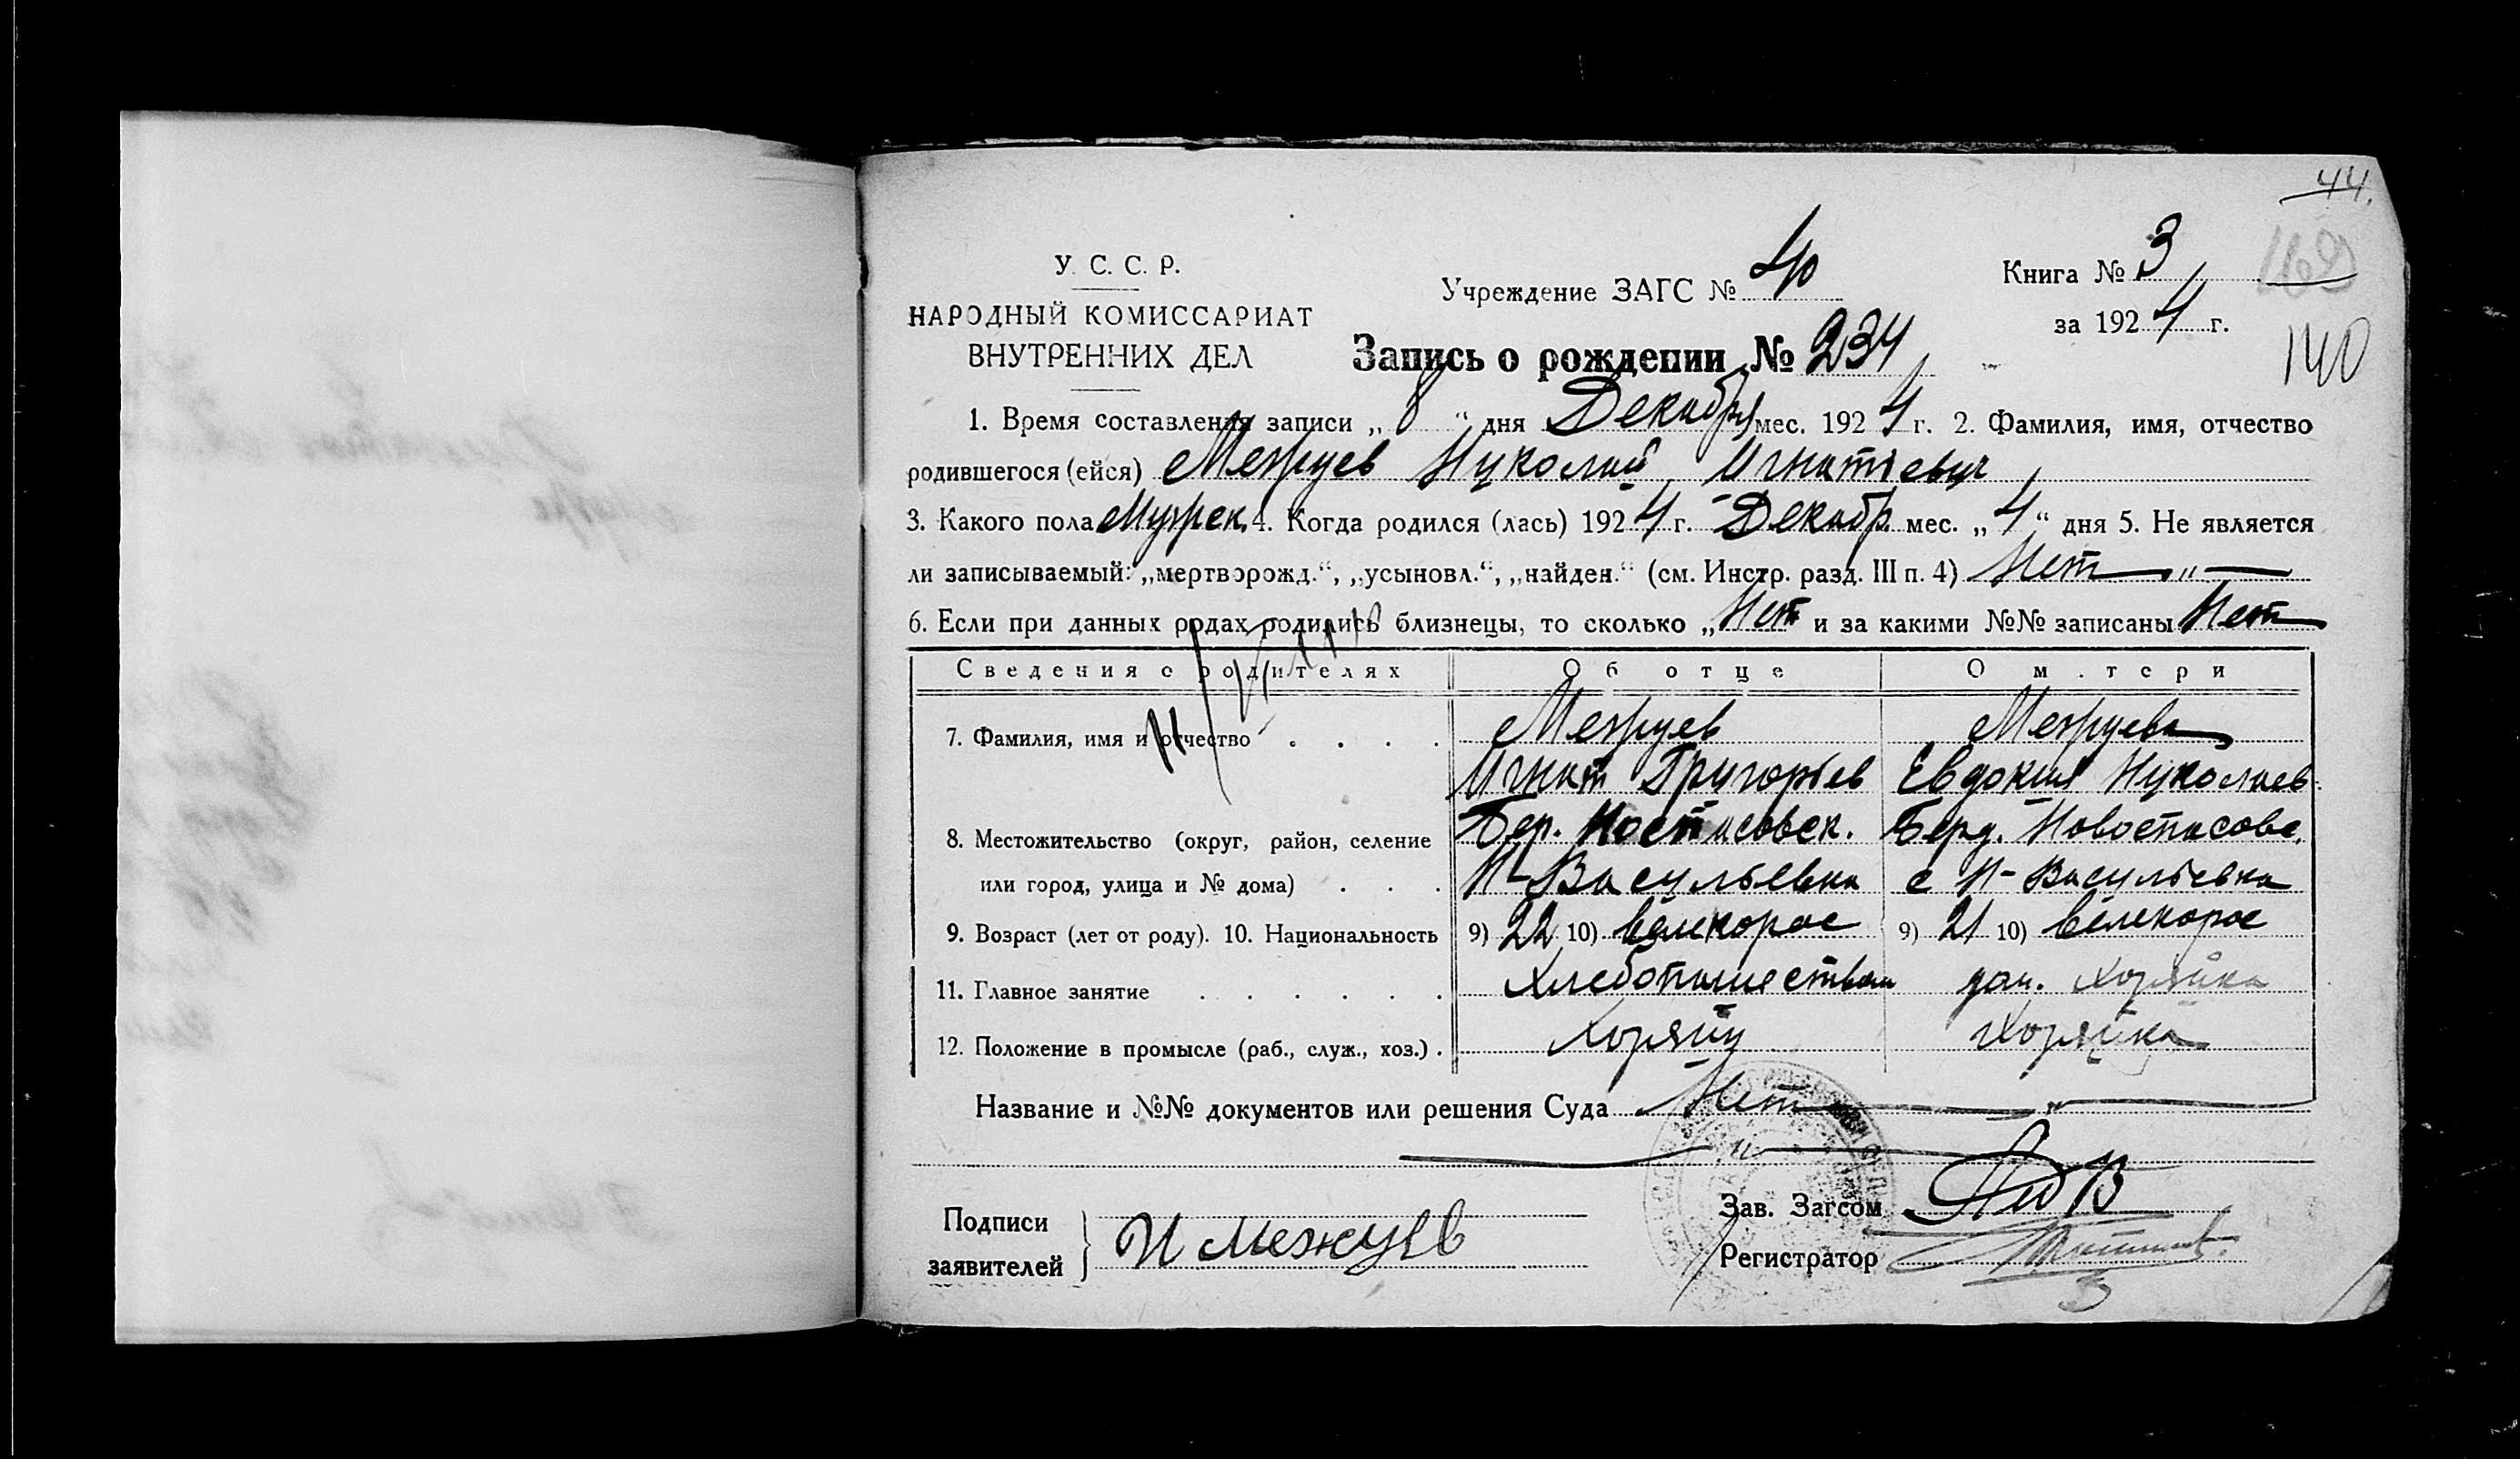 44.
У. С. С. Р.
НАРОДНЫЙ КОМИССАРИАТ
ВНУТРЕННИХ ДЕЛ
Учреждение ЗАГС № 40
Книга № 3
за 1924 г.
140
Запись о рождении № 234
1. Время составления записи „8“ дня Декабря мес. 1924 г. 2. Фамилия, имя, отчество
родившегося (ейся) Межуев Николай Игнатіевич
3. Какого пола Мужск. 4. Когда родился (лась) 1924 г. Декабр. мес. „4“ дня 5. Не является
ли записываемый: „мертворожд.“, „усыновл.“, „найден.“ (см. Инстр. разд. III п. 4) Нет — „ —
6. Если при данных родах родились близнецы, то сколько „Нет и за какими №№ записаны Нет
Сведения о родителях Об отце О м.тери
7. Фамилия, имя и отчество . . . . Межуев Межуева
Игнат Григорьев Евдокия Николаев.
8. Местожительство (округ, район, селение Бер. Берд. Новоспасовс.
или город, улица и № дома) . . . Н-Васильевка с Н-Васильевка
9. Возраст (лет от роду). 10. Национальность 9) 22 10) велекорос 9) 21 10) велекорос
11. Главное занятие . . . . . . Хлебопашеством дом. хозяйка
12. Положение в промысле (раб., служ., хоз.) . Хозяин Хозяйка
Название и №№ документов или решения Суда Нет — „ —
— „ —
Подписи
заявителей } И Межуев
Зав. Загсом
Регистратор